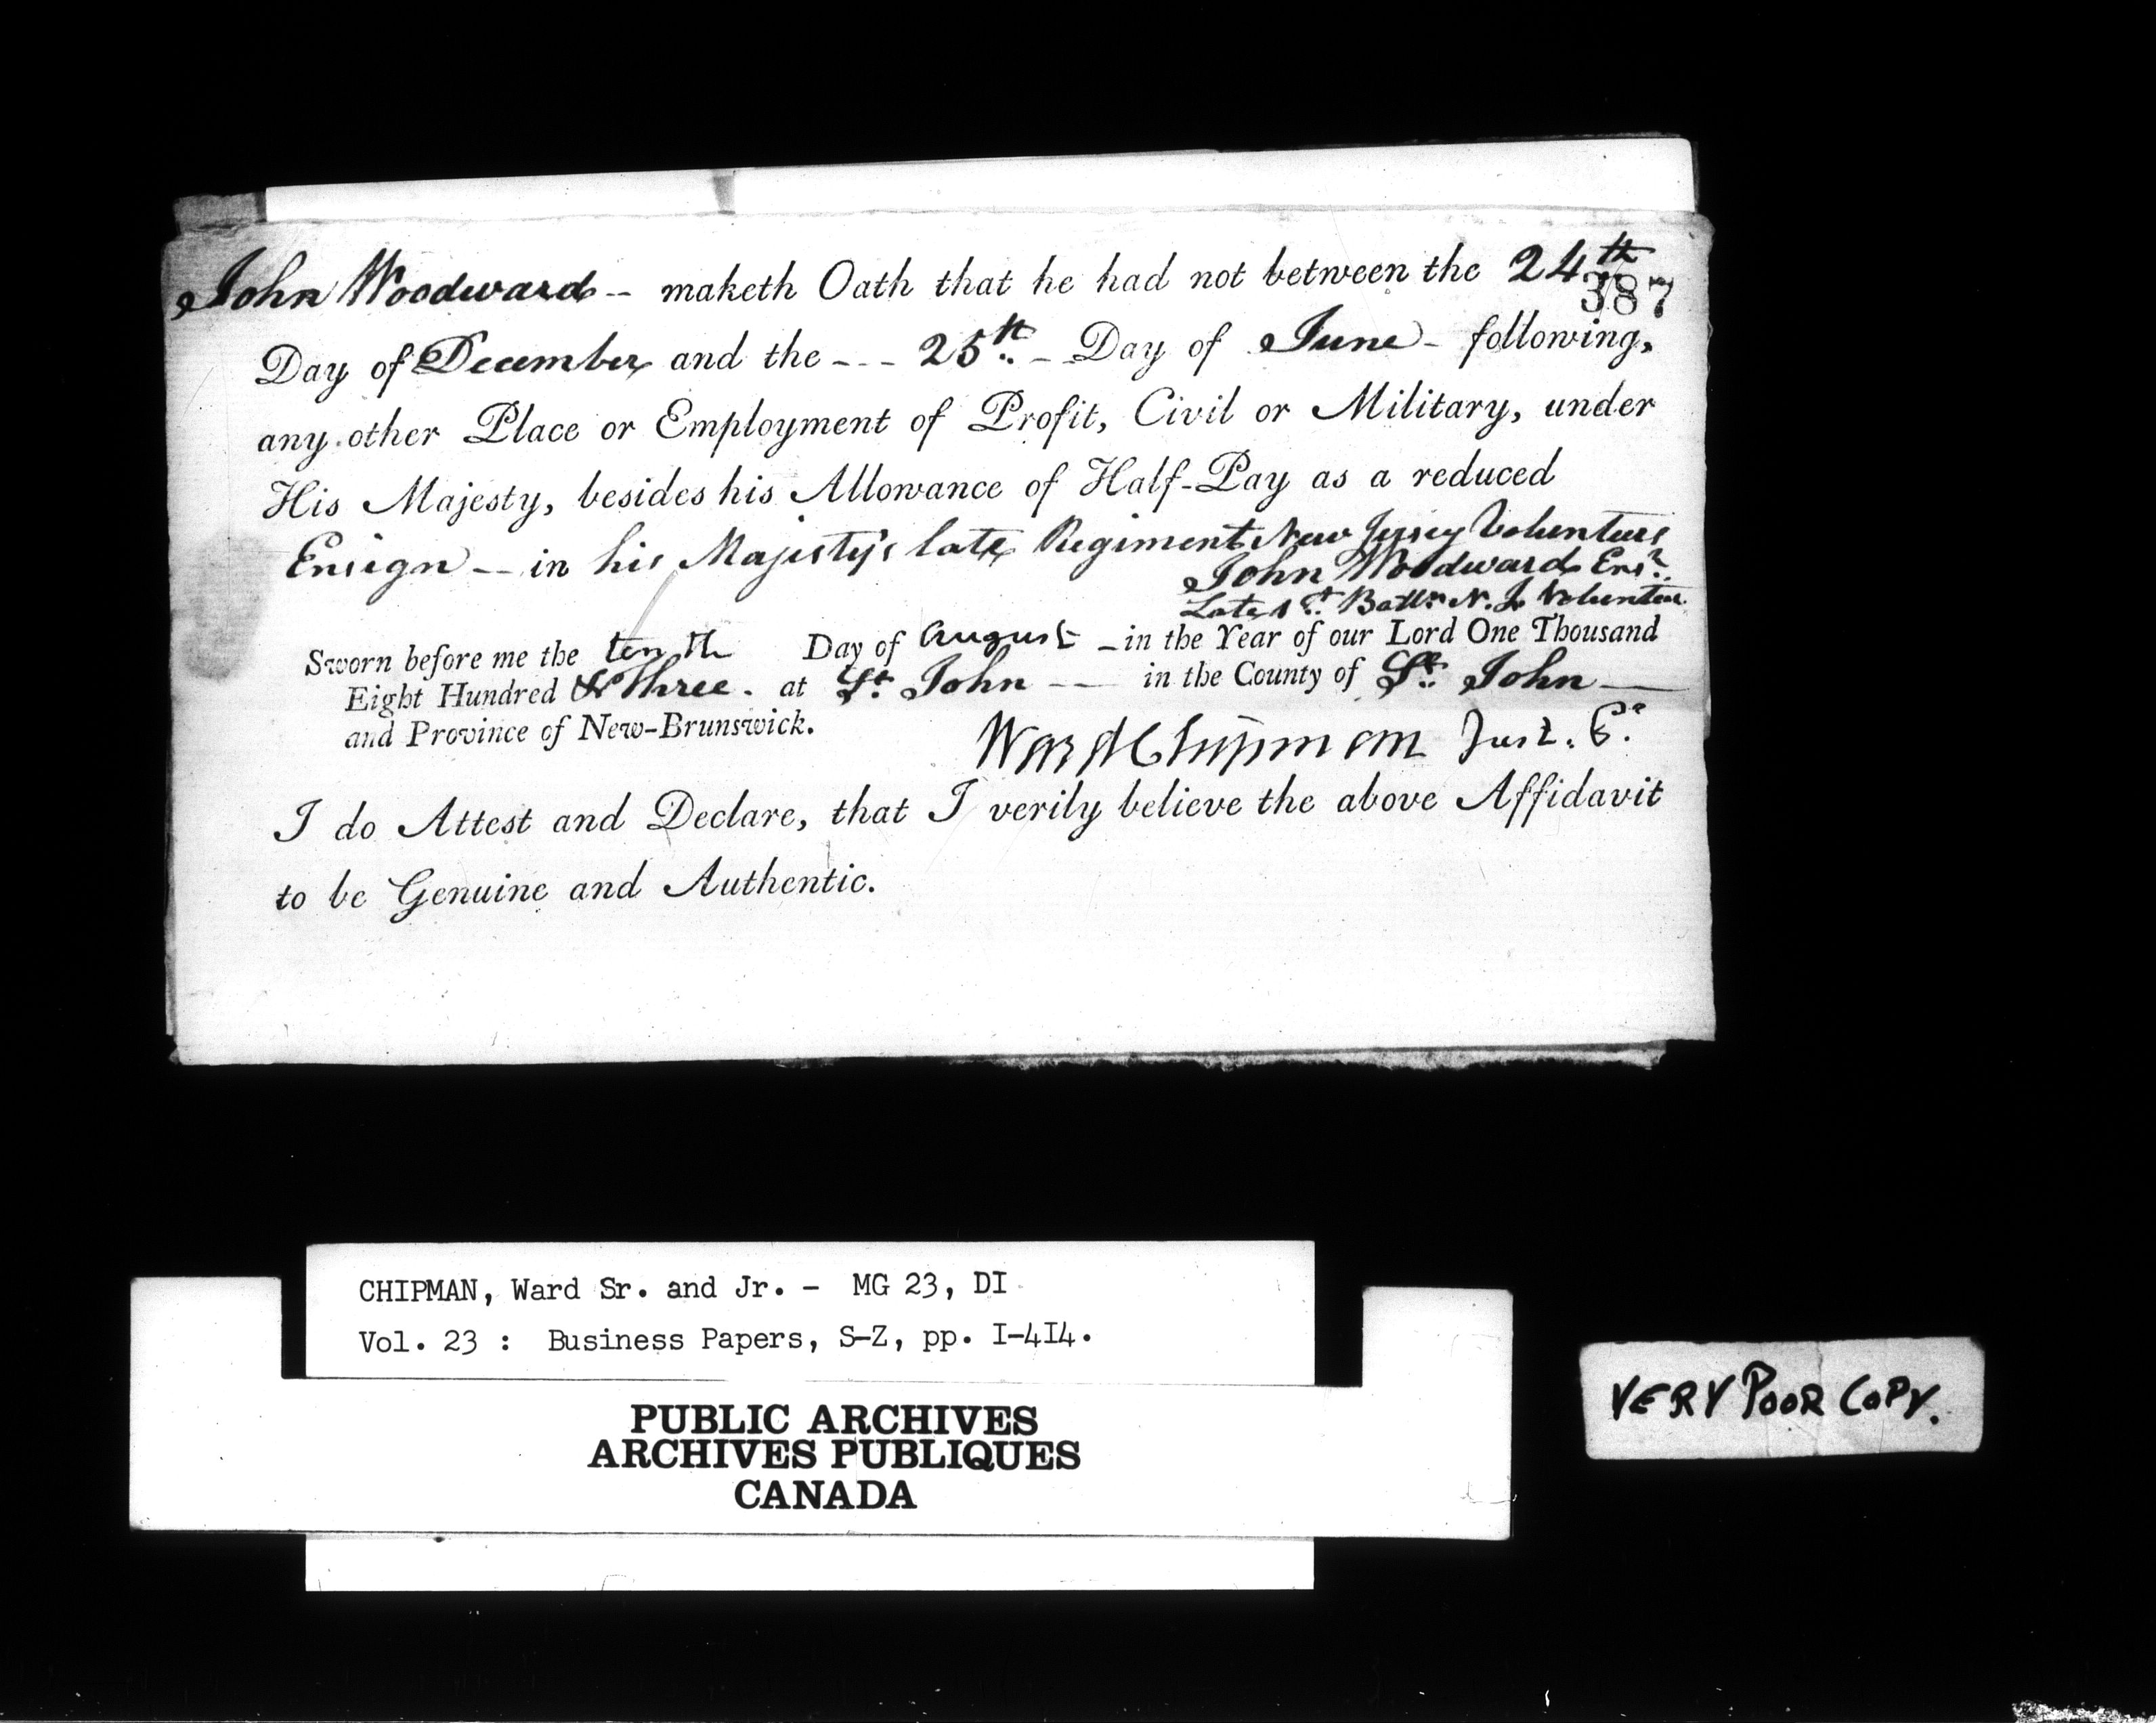 John Woodward -- maketh Oath that he had not between the 24th
387
Day of December and the --- 25th - Day of June - following,
any other Place or Employment of Profit, Civil or Military, under
His Majesty, besides his Allowance of Half-Pay as a reduced
Ensign -- in his Majesty's late Regiment New Jersey Volunteers
John Woodward Ens.n
Late 1st Battn N. J. Volunteers
Sworn before me the tenth Day of August - in the Year of our Lord One Thousand
Eight Hundred & Three. at St. John -- in the County of St. John --
and Province of New-Brunswick.
Ward Chipman Just. Ps.
I do Attest and Declare, that I verily believe the above Affidavit
to be Genuine and Authentic.
CHIPMAN, Ward Sr. and Jr. - MG 23, DI
Vol. 23 : Business Papers, S-Z, pp. I-4I4.
PUBLIC ARCHIVES
ARCHIVES PUBLIQUES
CANADA
VERY POOR COPY.